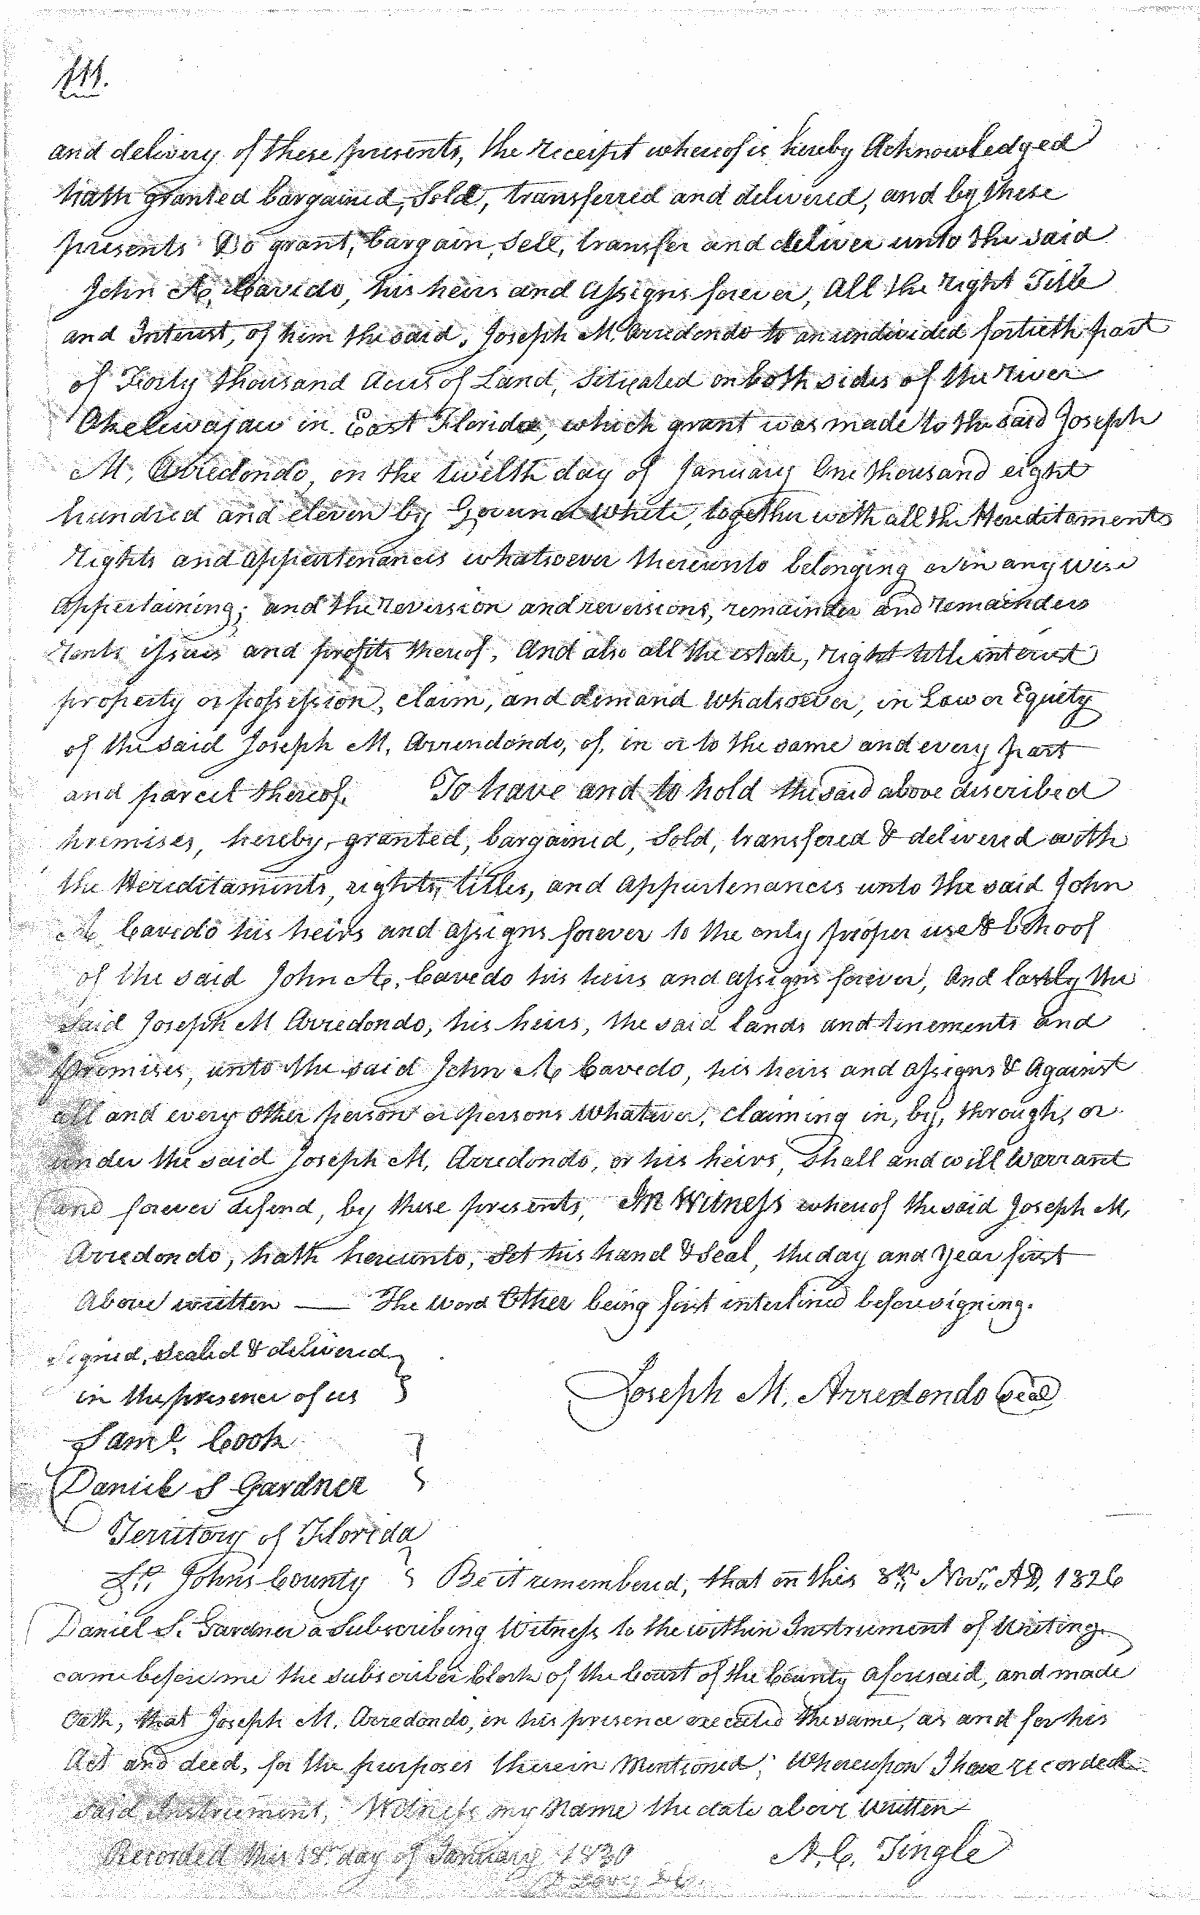 111.
and delivery of these presents, the receipt whereof is hereby Acknowledged
hath granted bargained, Sold, transferred and delivered, and by these
presents Do grant, bargain, Sell, transfer and deliver unto the said
John A. Cavedo, his heirs and assigns forever, All the right Title
and Interest, of him the said, Joseph M. Arredondo to an undivided fortieth part
of Forty thousand Acres of Land, Situated on both sides of the river
in East Florida, which grant was made to the said Joseph
M. Arredondo, on the twelth day of January One thousand eight
hundred and eleven by Governor White, together with all the Hereditaments
rights and appurtenances whatsoever thereunto belonging or in any wise
appertaining; and the reversion and reversions, remainder and remainders
rents issues and profits thereof, And also all the estate, right title interest
property or possession, claim, and demand whatsoever, in Law or Equity
of the said Joseph M. Arrendondo, of, in or to the same and every part
and parcel thereof. To have and to hold the said above discribed
premises, hereby, granted, bargained, Sold, transfered & delivered with
the Hereditaments, rights, titles, and appurtenances unto the said John
A. Cavedo his heirs and assigns forever to the only proper use & behoof
of the said John A. Cavedo his heirs and assigns forever, And lastly the
said Joseph M Arredondo, his heirs, the said lands and tinements and
premises, unto the said John A Cavedo, his heirs and assigns & Against
all and every other person or persons whatever, claiming in, by, through, or
under the said Joseph M. Arredondo, or his heirs, Shall and will Warrant
and forever defend, by these presents, In Witness whereof the said Joseph M.
Arredondo, hath hereunto, Set his hand & Seal, the day and year first
Above written — The word Other being first interlined before signing.
Signed, sealed & delivered
in the presence of us
Joseph M. Arredondo seal
Saml. Cook
Daniel S Gardner
Territory of Florida
St. Johns County } Be it remembered, that on this 8th Novr. AD, 1826
Daniel S. Gardner a Subscribing Witness to the within Instrument of Writing
came before me the subscriber Clerk of the Court of the County aforesaid, and made
Oath, that Joseph M. Arredondo, in his presence executed the same, as and for his
Act and deed, for the purposes therein Mentioned; Whereupon I have recorded
said Instrument, Witness my Name the date above Written
Recorded this 18th day of January 1830
A. C. Tingle